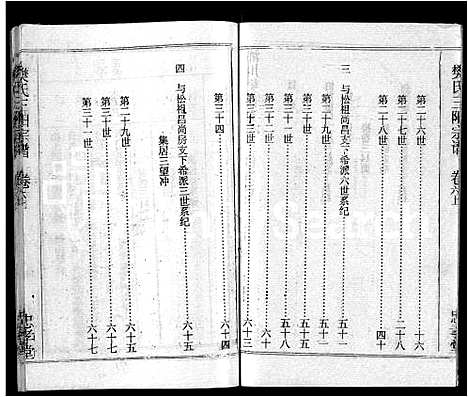 樊氏三陽宗譜 卷六上
忠孝堂
第二十六世……十六
第二十七世……二十八
第二十八世……四十
三 与松祖尚昌支下希派六世系纪……五十一
第二十九世……五十一
第三十世……五十八
第三十二世……五十八
第三十三世……六十三
第三十四……六十四
四 与松祖昌尚房支下希派三世系纪……六十五
集居三望冲
第二十九世……六十五
第三十世……六十七
第三十一世……六十七
忠孝堂